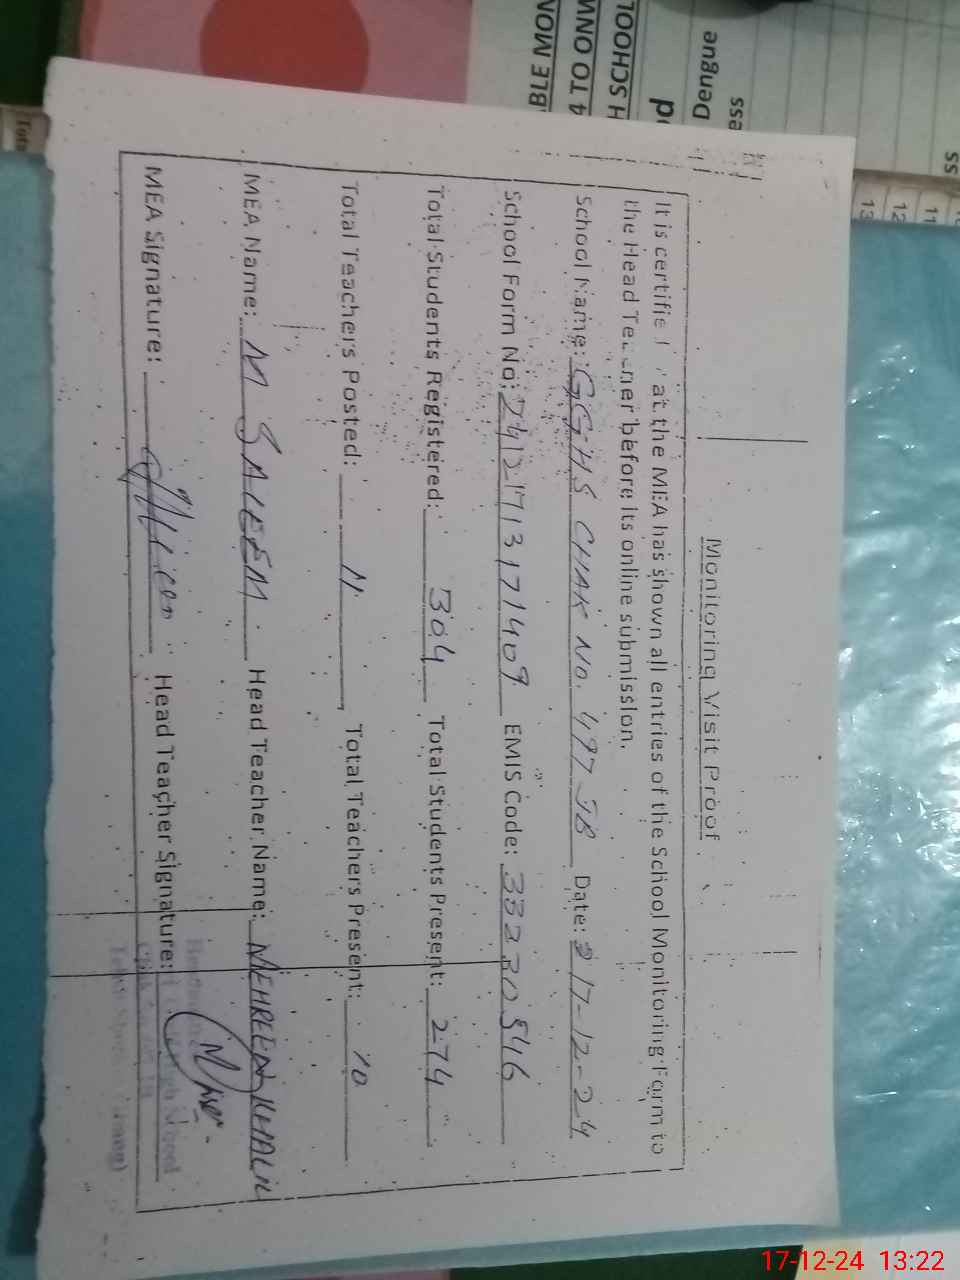 BLE NOW
4 TO ONW
H SCHOOL
Dengue
ess
11
12
13
Monitoring Visit Proof
It is certified that the MEA has shown all entries of the School Monitoring Form to
the Head Teacher before its online submission.
School Name: GGHS CHAK NO. 497 JB Date: 17-12-24
School Form No: 24121713171409 EMIS Code: 33230546
Total Students Registered: 304 Total Students Present: 274
Total Teachers Posted: 11 Total Teachers Present: 10
MEA Name: M SALEEM Head Teacher Name: MEHREEN KHALIL
MEA Signature: Head Teacher Signature:
17-12-24 13:22